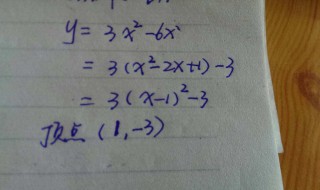 y = 3x²-6x
= 3(x²-2x+1)-3
= 3(x-1)²-3
顶点 (1,-3)